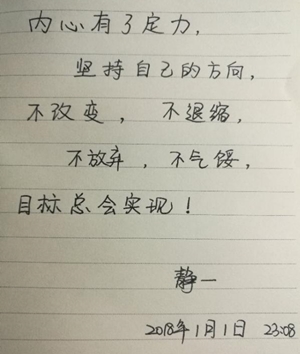 内心有了定力,
坚持自己的方向,
不改变, 不退缩,
不放弃, 不气馁,
目标总会实现!
静一
2018年1月1日 23:08